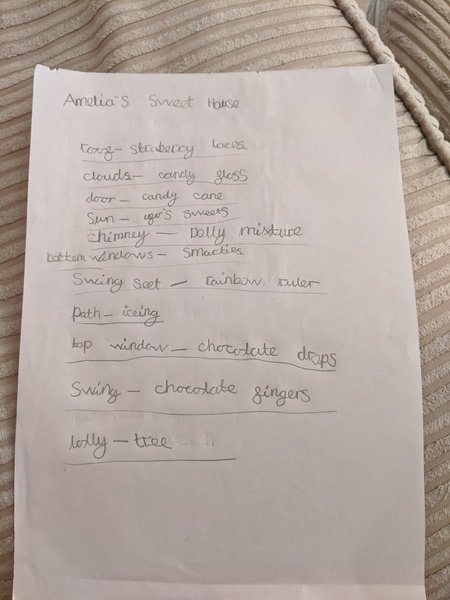 Amelia's Sweet House
straberry laces
clouds – candy gloss
door – candy cane
Sun – sweets
chimney – Dolly mixture
bottem windows – Smarties
Swing Seet – rainbow ruler
Path – iceing
top window – chocolate drops
Swing – chocolate gingers
lolly – tree